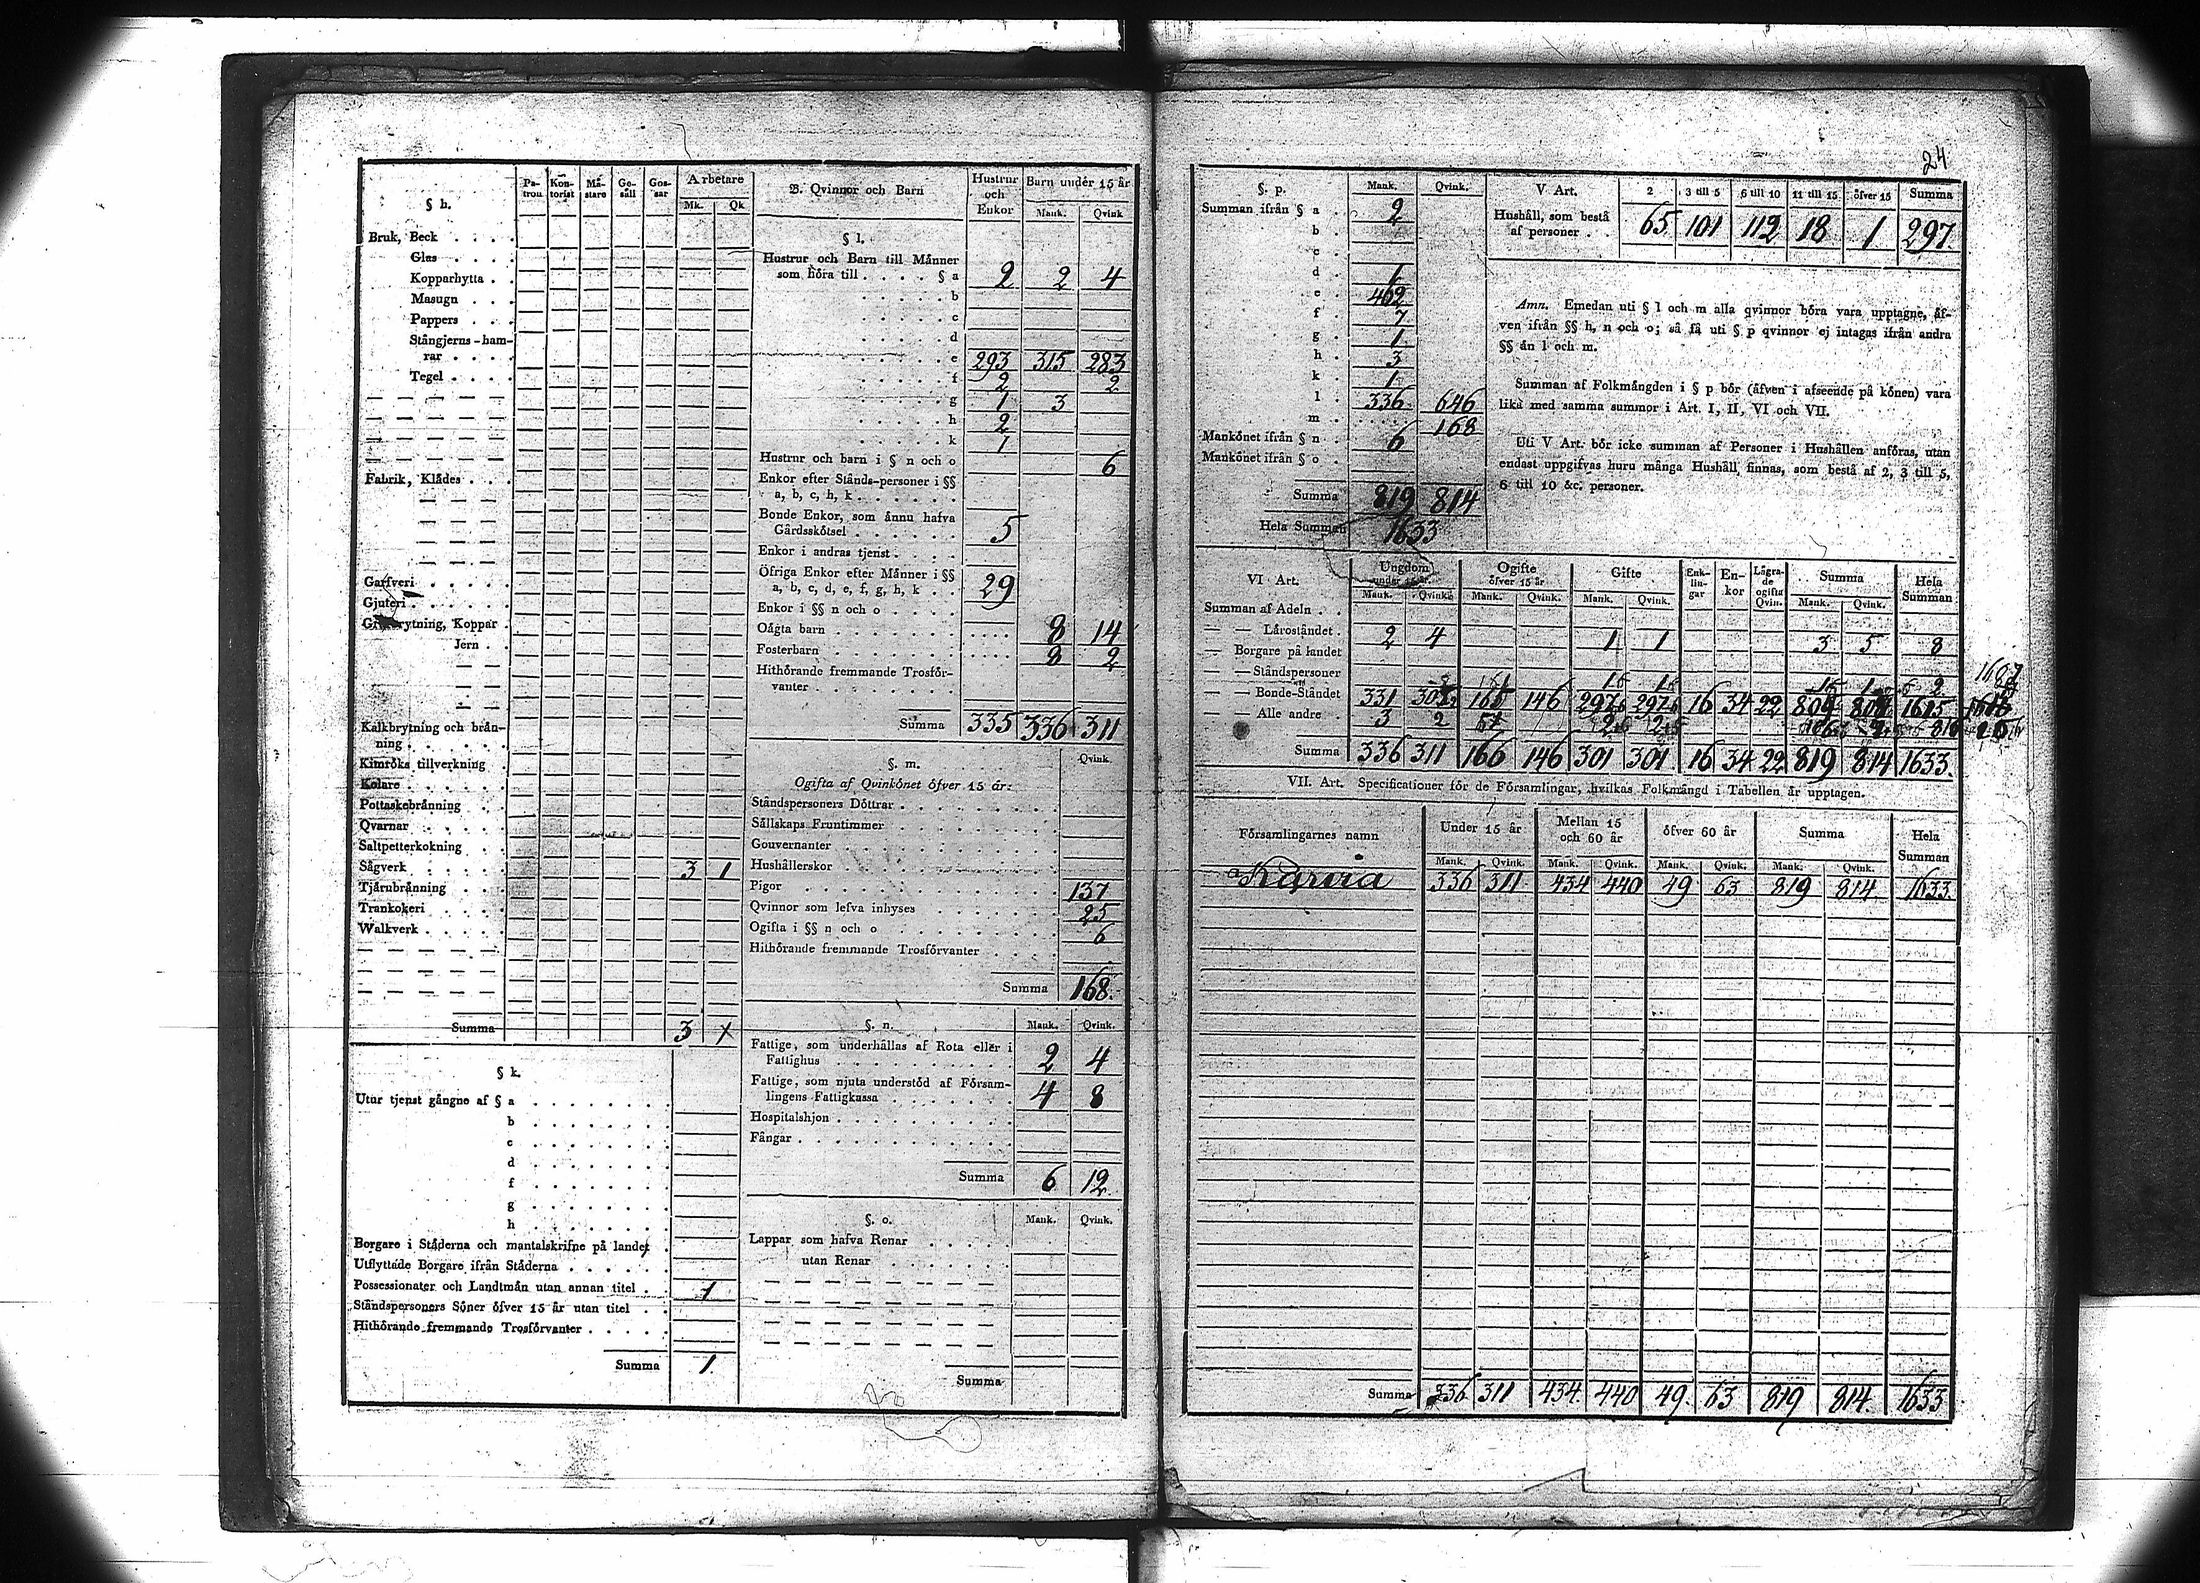 § h.
Pa-tron Kon-torist Mä-stare Ge-säll Gos-sar Arbetare
Mk. Qk
Bruk, Beck
Glas
Kopparhytta
Masugn
Pappers
Stångjerns-ham-
rar
Tegel
Fabrik, Klådes
Garfveri
Gjuteri
Koppar
Jern
Kalkbrytning och brån-
ning
Kimröks tillverkning
Kolare
Pottaskebrånning
Qvarnar
Saltpetterkokning
Sågverk 3 1
Tjårubrånning
Trankokeri
Walkverk
Summa 3 1
§ k.
Utur tjenst gångne af § a
b
c
d
f
g
h
Borgare i Ståderna och mantalskrifne på landet
Utflyttade Borgare ifrån Ståderna
Possessionater och Landtmån utan annan titel 1
Ståndspersoners Söner öfver 15 år utan titel
Hithörande fremmande Trosförvanter
Summa 1.
B. Qvinnor och Barn
Hustrur och Enkor Barn under 15 år
Mank. Qvink
§ l.
Hustrur och Barn till Männer
som höra till § a 2 2 4
b
c
d
e 293 315 283
f 2 2
g 1 3
h 2
k 1
Hustrur och barn i § n och o 6
Enkor efter Stånds-personer i §§
a, b, c, h, k
Bonde Enkor, som ännu hafva
Gårdsskötsel 5
Enkor i andras tjenst
Öfriga Enkor efter Männer i §§
a, b, c, d, e, f, g, h, k 29
Enkor i §§ n och o
Oägta barn 8 14
Fosterbarn 8 2
Hithörande fremmande Trosför-
vanter
Summa 335 336 311
§. m. Qvink
Ogifta af Qvinkönet öfver 15 år:
Ståndspersoners Döttrar
Sällskaps Fruntimmer
Gouvernanter
Hushållerskor
Pigor 137
Qvinnor som lefva inhyses 25
Ogifta i §§ n och o 6
Hithörande fremmande Trosförvanter
Summa 168.
§. n. Mank. Qvink.
Fattige, som underhållas af Rota eller i
Fattighus 2 4
Fattige, som njuta understöd af Försam-
lingens Fattigkassa 4 8
Hospitalshjon
Fångar
Summa 6 12.
§. o. Mank. Qvink.
Lappar som hafva Renar
utan Renar
Summa
24
§. p. Mank. Qvink.
Summan ifrån § a 2
b
c
d 1
e 462
f 7
g 1
h 3
k 1
l 336 646
m 168
Mankönet ifrån § n 6
Mankönet ifrån § o
Summa 819 814
Hela Summan 1633
V Art. 2 3 till 5 6 till 10 11 till 15 öfver 15 Summa
Hushåll, som bestå
af personer 65 101 112 18 1 297.
Anm. Emedan uti § l och m alla qvinnor böra vara upptagne, äf-
ven ifrån §§ h, n och o; så få uti § p qvinnor ej intagas ifrån andra
§§ än l och m.
Summan af Folkmängden i § p bör (äfven i afseende på könen) vara
lika med samma summor i Art. I, II, VI och VII.
Uti V Art. bör icke summan af Personer i Hushållen anföras, utan
endast uppgifvas huru många Hushåll finnas, som bestå af 2, 3 till 5,
6 till 10 &c. personer.
VI Art. Ungdom under 15 år. Ogifte öfver 15 år Gifte Enk-lin-gar En-kor Lägra-de ogifta Qvin. Summa Hela Summan
Mank. Qvink. Mank. Qvink. Mank. Qvink. Mank. Qvink.
Summan af Adeln
— — Låroståndet 2 4 1 1 3 5 8
— — Borgare på landet
— — Ståndspersoner
— — Bonde-Ståndet 331 146 16 34 22
— — Alle andre 3 2
Summa 336 311 166 146 301 301 16 34 22 819 814 1633.
VII. Art. Specificationer för de Församlingar, hvilkas Folkmängd i Tabellen är upptagen.
Församlingarnes namn Under 15 år Mellan 15 och 60 år öfver 60 år Summa Hela Summan
Mank. Qvink. Mank. Qvink. Mank. Qvink. Mank. Qvink.
Karvia 336 311 434 440 49 63 819 814 1633.
Summa 336 311 434 440 49. 63 819 814. 1633